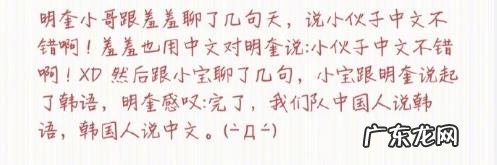 明奎小哥跟羞羞聊了几句天，说小伙子中文不
错啊！羞羞也用中文对明奎说:小伙子中文不错
啊！XD 然后跟小宝聊了几句，小宝跟明奎说起
了韩语，明奎感叹:完了，我们队中国人说韩
语，韩国人说中文。(-̀Д-́)
广东龙网